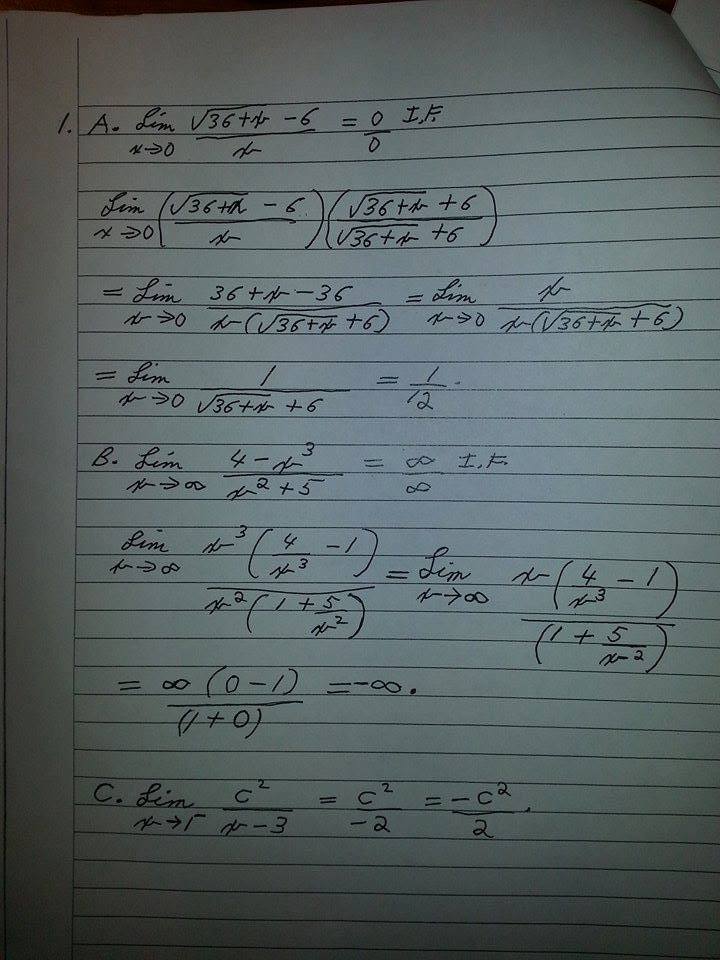 1. A. Lim x→0 (√(36+x) - 6)/x = 0/0 I.F.
Lim x→0 ((√(36+x) - 6)/x) ((√(36+x) + 6)/(√(36+x) + 6))
= Lim x→0 (36+x-36)/(x(√(36+x) + 6)) = Lim x→0 x/(x(√(36+x) + 6))
= Lim x→0 1/(√(36+x) + 6) = 1/12.
B. Lim x→∞ (4-x³)/(x²+5) = ∞/∞ I.F.
Lim x→∞ x³(4/x³ - 1)/(x²(1 + 5/x²)) = Lim x→∞ x(4/x³ - 1)/(1 + 5/x²)
= ∞(0-1)/(1+0) = -∞.
C. Lim x→1⁻ c²/(x-3) = c²/-2 = -c²/2.